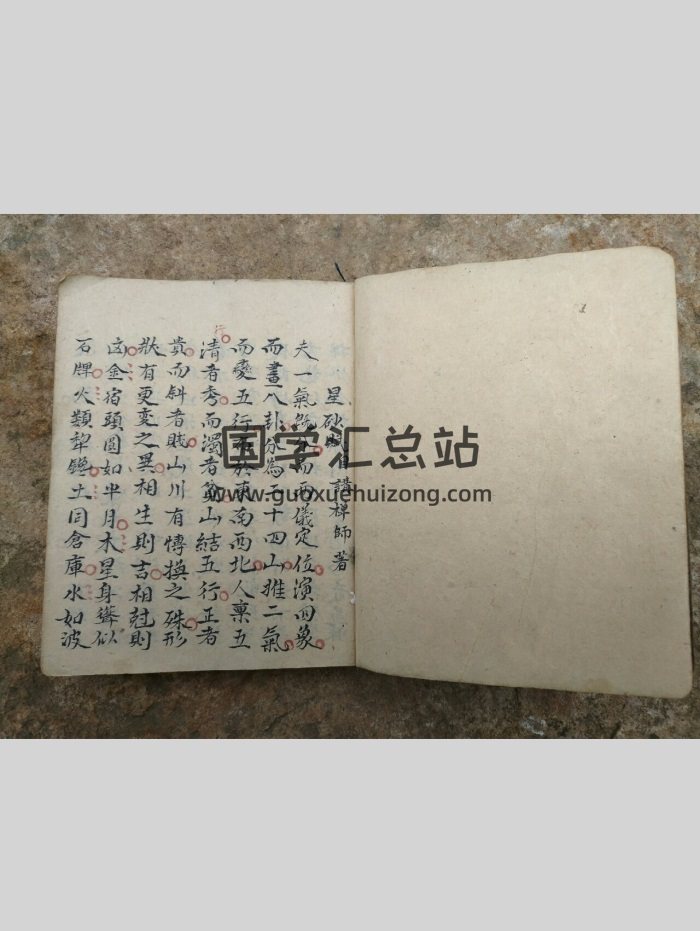 星砂賦目講禪師著
夫一氣既分而兩儀定位演四象
而畫八卦分為二十四山推二氣
而變五行布於東南西北人稟五
行
清者秀而濁者山結五行正者
貴而斜者賤山川有博換之殊形
狀有更变之異相生則吉相尅則
凶金宿頭圓如半月木星身聳似
石牌火類犁鑱土同倉庫水如波
国学汇总站
www.guoxuehuizong.com